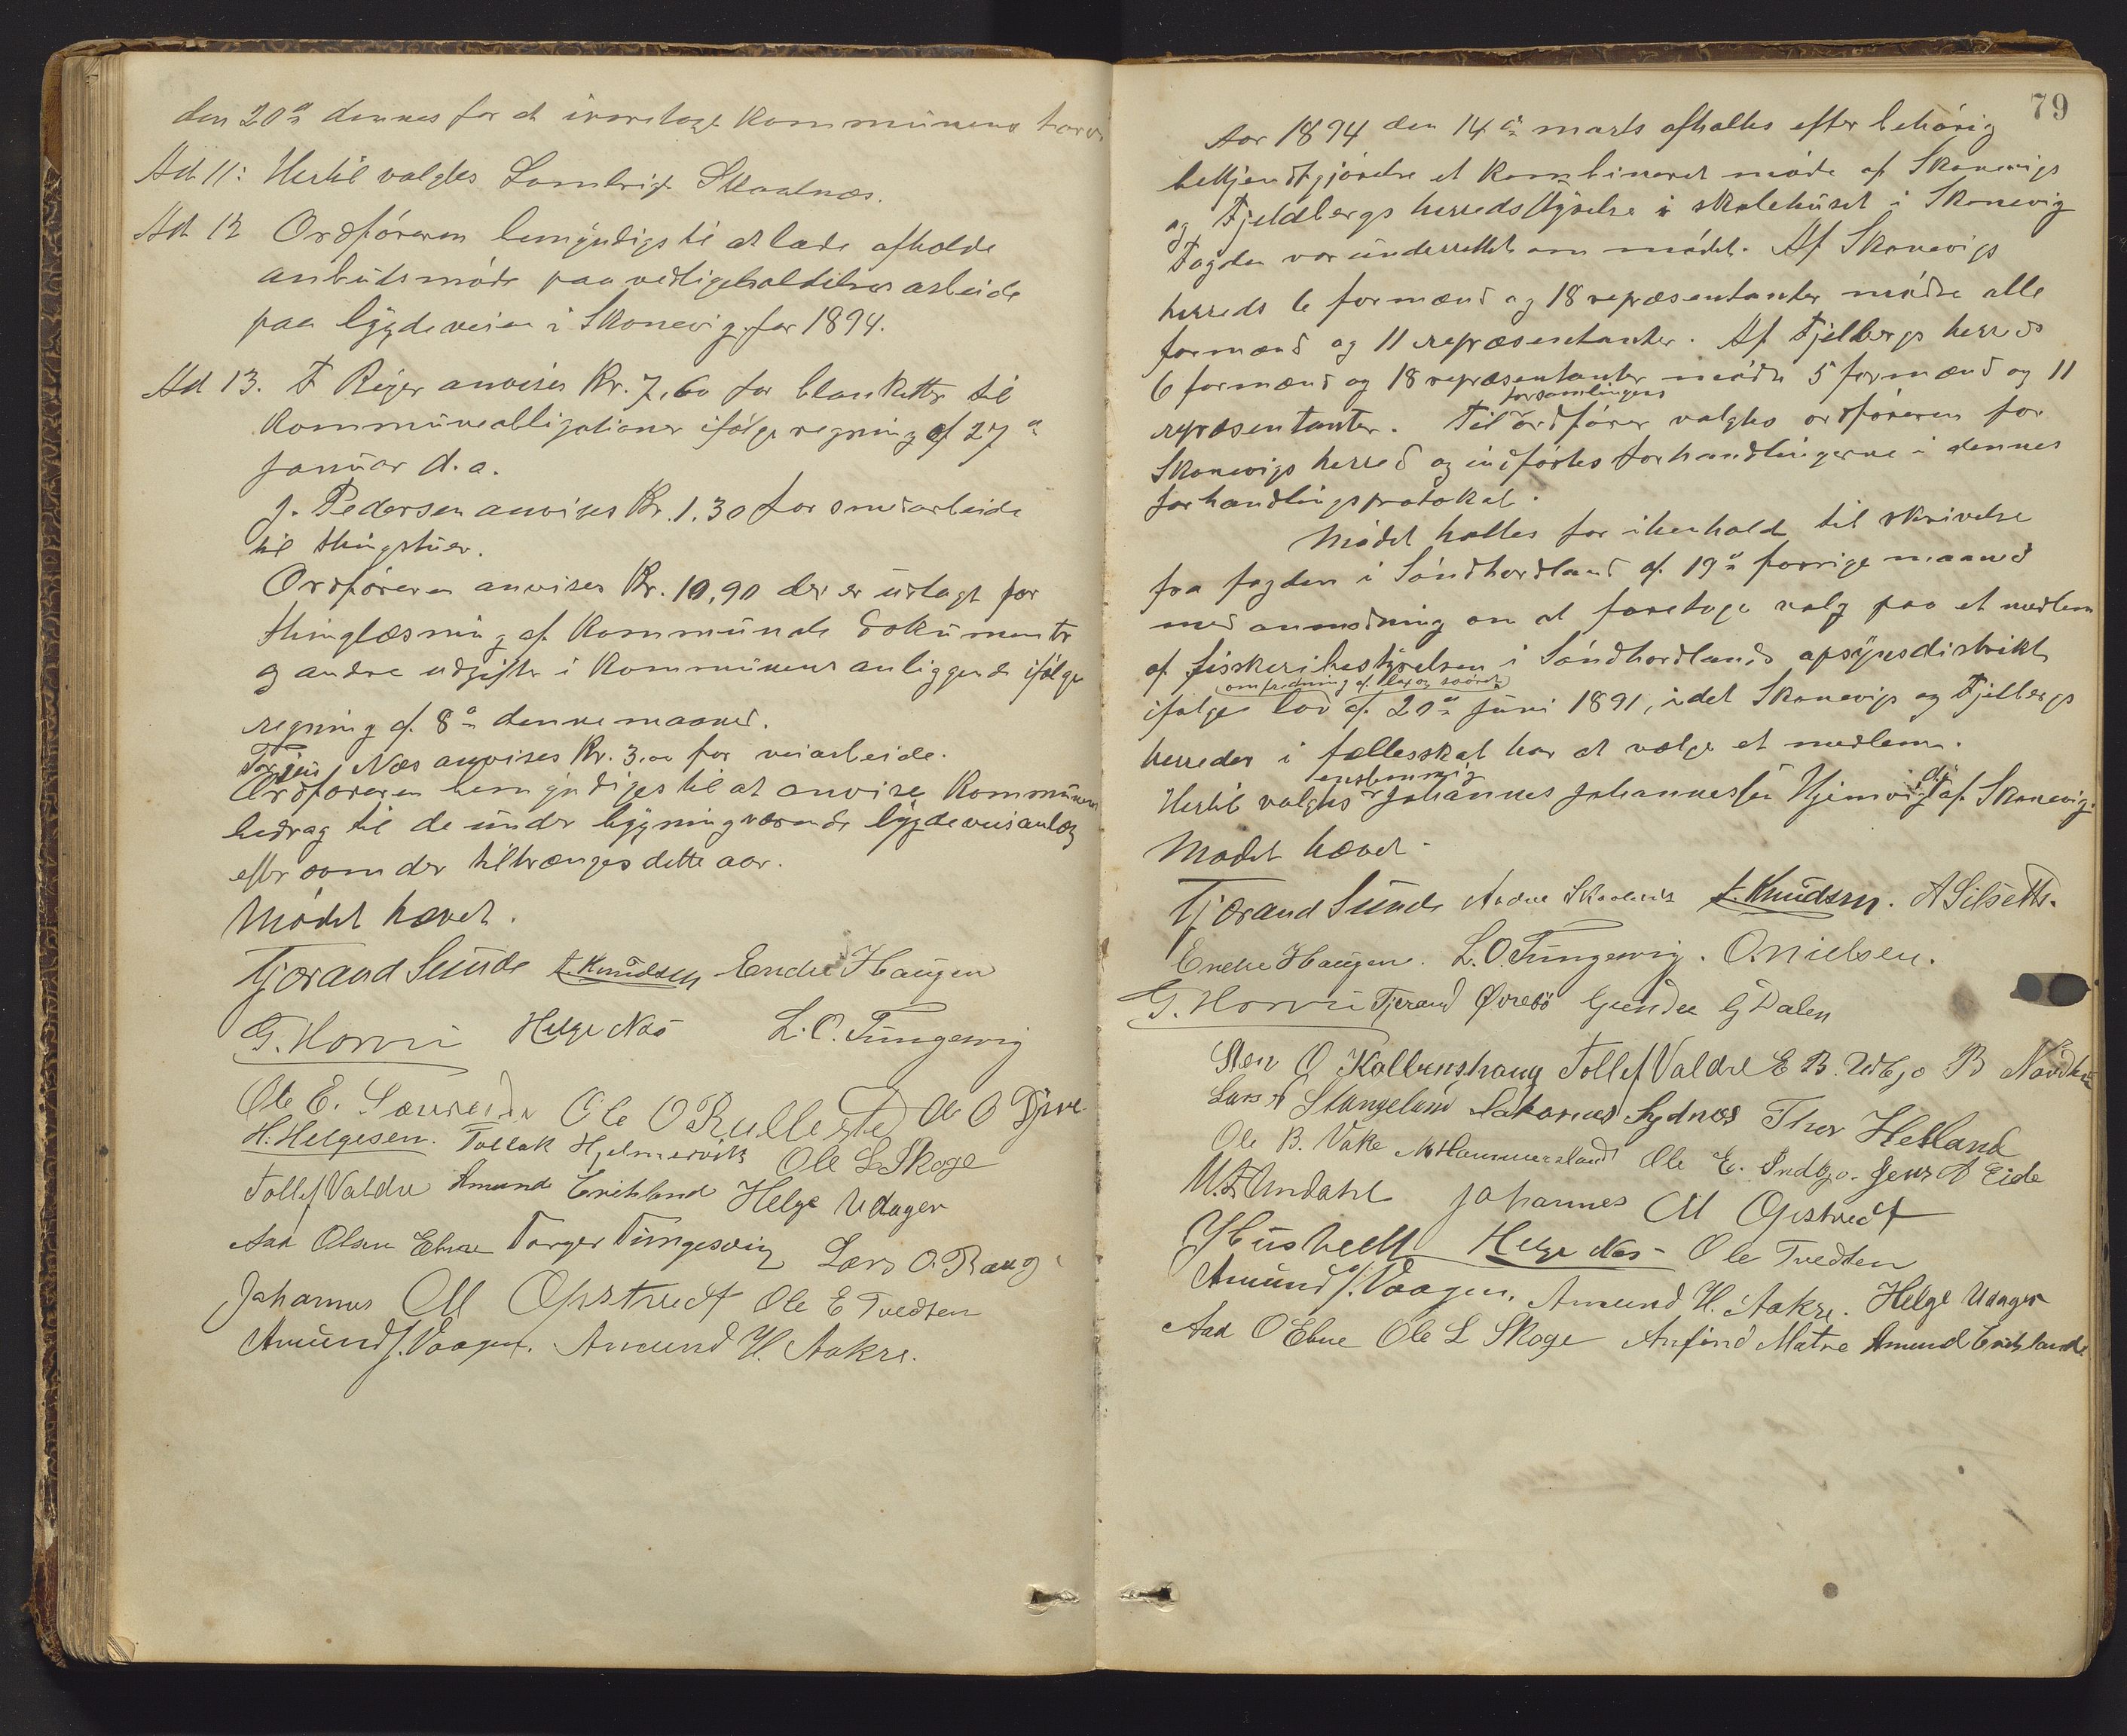 den 20de dennes for at ivaretage kommunens tarv.
Ad 11: Hertil valgtes Lambrigt Skaalnæs.
Ad 12 Ordføreren bemyndiges til at lade afholde
anbudsmøde paa vedligeholdelsesarbeide
paa bygdeveien i Skonevig for 1894.
Ad 13. F Beyer anvises Kr. 7,60 for blanketter til
kommuneobligationer ifølge regning af 27de
januar d.a.
J. Pedersen anvises Kr. 1.30 for smedarbeide
til thingstuen.
Ordføreren anvises Kr. 10,90 der er udlagt for
thinglæsning af kommunale dokumenter
og andre udgifter i kommunens anliggende ifølge
regning af 8de denne maaned.
Torjus Næs anvises Kr. 3.00 for veiarbeide.
Ordføreren bemyndiges til at anvise kommunens
bidrag til de under bygning værende bygdeveisanlæg
eftersom der tiltrænges dette aar.
Mødet hævet.
Tjorand Sunde L. Knudsen Endre Haugen
G. Horvei Helge Næs L. O. Tungesvig
Ole E. Ole O Rullestad Ole O Djuve
H. Helgesen. Tollak Hjelmervik Ole L Skoge
Tollef Valdre Amund Eritsland Helge Udager
Aad Olsen Ebne Torger Tungesvig Lars O. Raug
Johannes M Opstvedt Ole E Tvedten
Amund J. Vaagen. Amund H. Aakre.
79
Aar 1894 den 14de marts afholtes efter behørig
bekjendtgjørelse et kombineret møde af Skonevigs
og Fjeldbergs herredsstyrelse i skolehuset i Skonevig
Fogden var underrettet om mødet. Af Skonevigs
herreds 6 formænd og 18 repræsentanter mødte alle
formænd og 11 repræsentanter. Af Fjelbergs herreds
6 formænd og 18 repræsentanter mødte 5 formænd og 11
forsamlingens
repræsentanter. Til ordfører valgtes ordføreren for
Skonevigs herred og indførtes forhandlingerne i dennes
forhandlingsprotokol.
Mødet holtes for i henhold til skrivelse
fra fogden i Søndhordland af 19de forrige maaned
med anmodning om at foretage valg paa et medlem
af fiskeribestyrelsen i Søndhordlands opsynsdistrikt
om fredning af lax og søørret
ifølge lov af 20de juni 1891, idet Skonevigs og Fjelbergs
herreder i fællesskab har at vælge et medlem.
enstemmig
Hertil valgtes Johannes Johannessen Hjemvigdt af Skonevig.
Mødet hævet.
Tjorand Sunde Andre Skaalnæs L. Knudsen. A Silseth.
Endre Haugen. L. O. Tungesvig. O. Nielsen.
G. Horvei Tjerand Øvrebø Gunder G Dalen
Sten O Kallevshaug Tollef Valdre E B. Udbjo B
Lars A Stangeland Sakarias Sydnes Thor Hetland
Ole B. Vake M Hammersland Ole E. Indbjo. Jens A Eide
M. L. Undahl Johannes M Opstvedt
J Husvedt Helge Næs Ole Tvedten
Amund J. Vaagen. Amund H. Aakre. Helge Udager
Aad O Ebne Ole L Skoge Anfind Matre Amund Eritsland